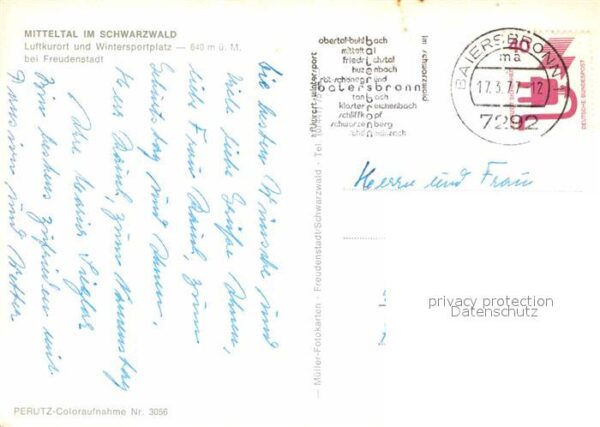 MITTELTAL IM SCHWARZWALD
Luftkurort und Wintersportplatz — 640 m ü. M.
bei Freudenstadt
Die besten Wünsche und
viele liebe Grüße Ihnen,
liebe Frau Rauch, zum
Geburtstag und Ihnen,
Herr Rauch, zum Namenstag
Ihre Maria
Wir zufrieden mit
und Wetter
PERUTZ-Coloraufnahme Nr. 3056
— Müller-Fotokarten · Freudenstadt/Schwarzwald · Tel.
obertal-buhlbach
mitteltal
friedrichstal
buzenbach
röt-schönegründ
baiersbronn
tonbach
kloster reichenbach
schliffkopf
schwarzenberg
luftkurort-wintersport
im schwarzwald
BAIERSBRONN
ma
17.3.77-12
7292
40
DEUTSCHE BUNDESPOST
Herrn und Frau
privacy protection
Datenschutz